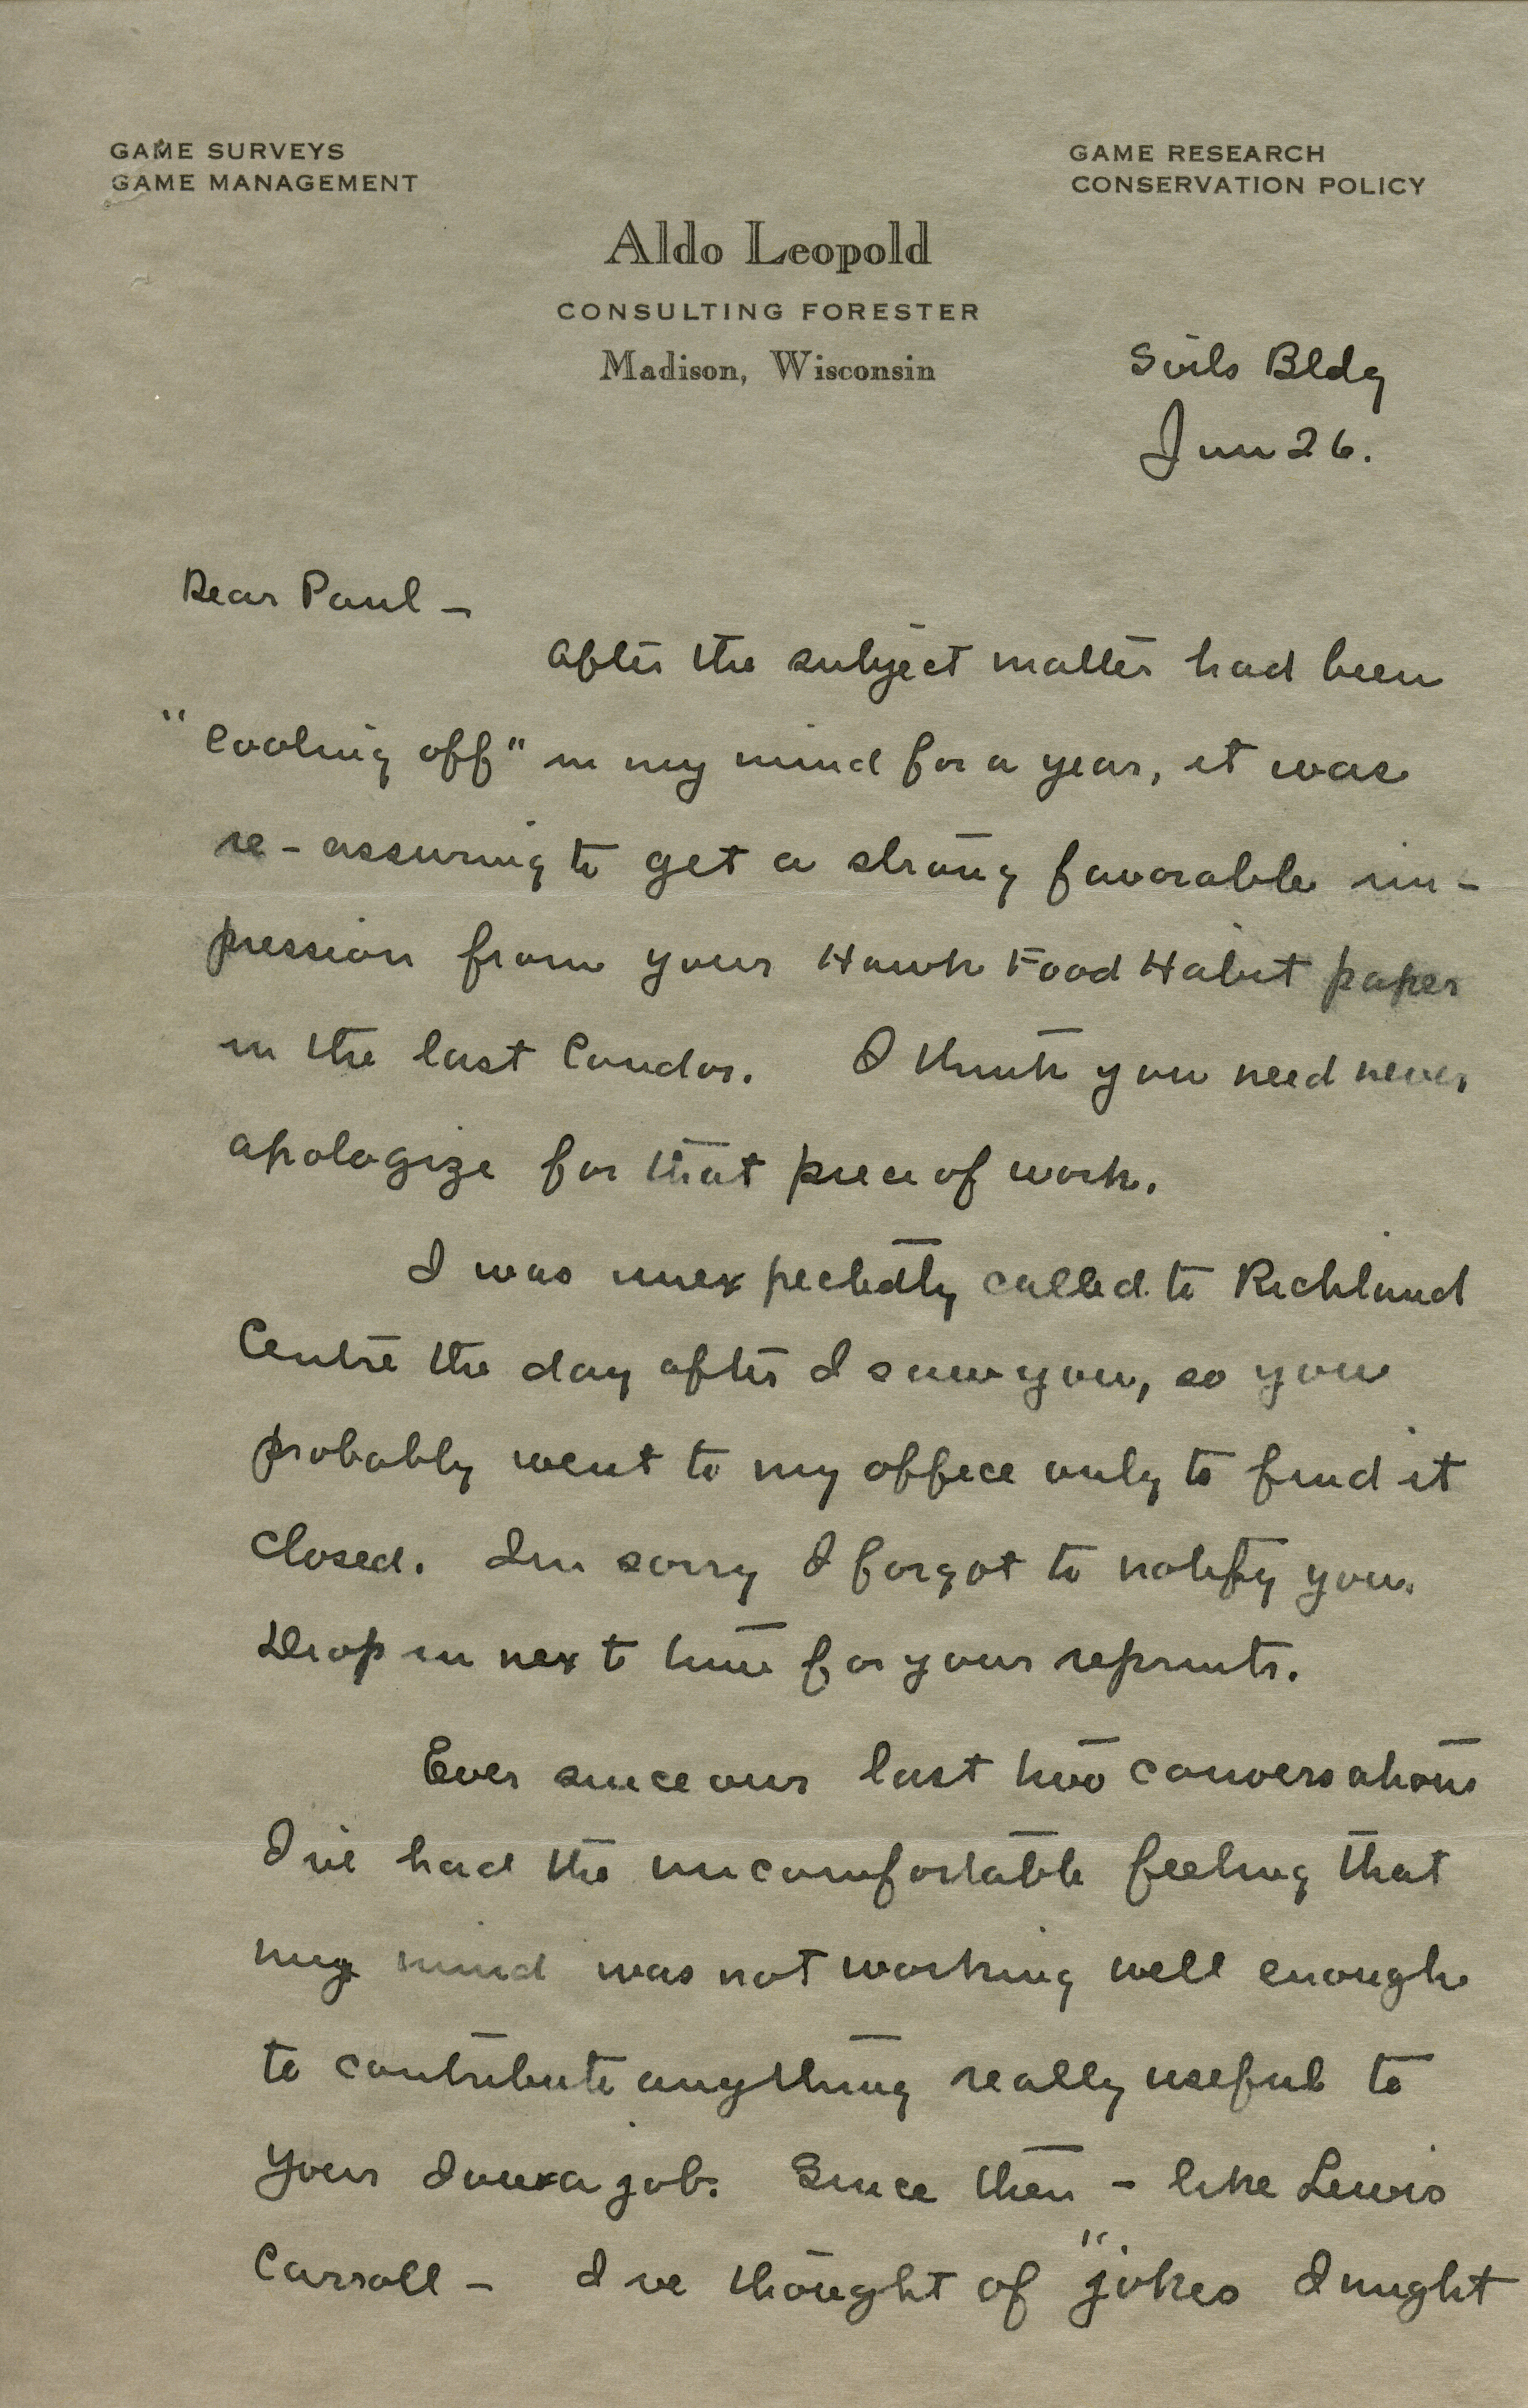 GAME SURVEYS
GAME MANAGEMENT
GAME RESEARCH
CONSERVATION POLICY
Aldo Leopold
CONSULTING FORESTER
Madison, Wisconsin
Soils Bldg
Jun 26.
Dear Paul –
After the subject matter had been
"cooling off" in my mind for a year, it was
re-assuring to get a strong favorable im-
pression from your Hawk Food Habit paper
in the last Condor. I think you need never
apologize for that piece of work.
I was unexpectedly called to Richland
Centre the day after I saw you, so you
probably went to my office only to find it
closed. Im sorry I forgot to notify you.
Drop in next time for your reprints.
Ever since our last two conversations
I've had the uncomfortable feeling that
my mind was not working well enough
to contribute anything really useful to
your Iowa job. Since then – like Lewis
Carroll – I've thought of "jokes I might